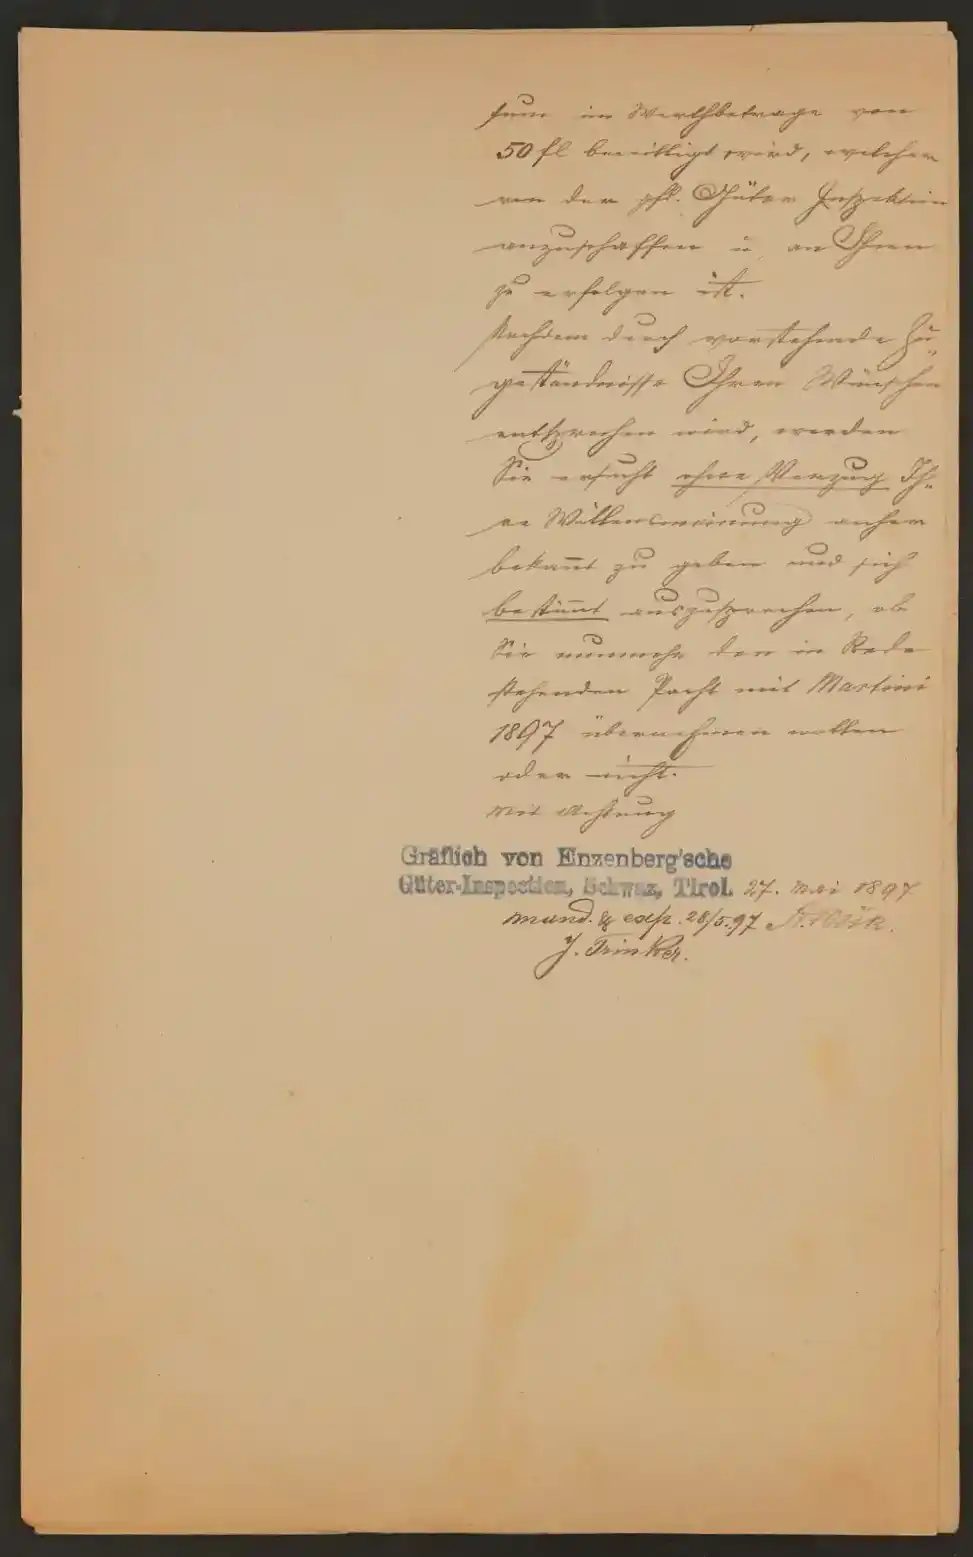 im Werthbetrage von
50 fl bewilligt wird, welcher
von der gfl. Güter Inspektion
anzuschaffen u. an Ihnen
zu erfolgen ist.
Nachdem durch vorstehende Zu„
geständnisse Ihren Wünschen
entsprochen wird, werden
Sie ersucht ohne Verzug Ih„
re Willensmeinung anher
bekannt zu geben und sich
bestimmt auszusprechen, ob
Sie nunmehr den in Rede
stehenden Pacht mit Martini
1897 übernehmen wollen
oder nicht.
Mit Achtung
Gräflich von Enzenberg'sche
Güter-Inspection, Schwaz, Tirol. 27. Mai 1897
mund. & exp. 28/5.97
J. Trinker.